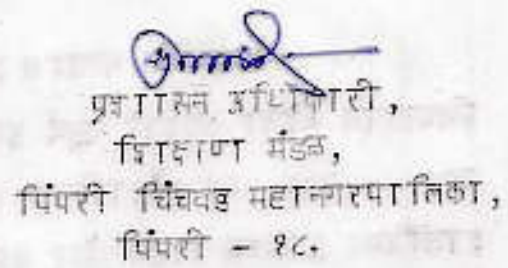 प्रशासन अधिकारी,
शिक्षण मंडळ,
पिंपरी चिंचवड महानगरपालिका,
पिंपरी - १८.